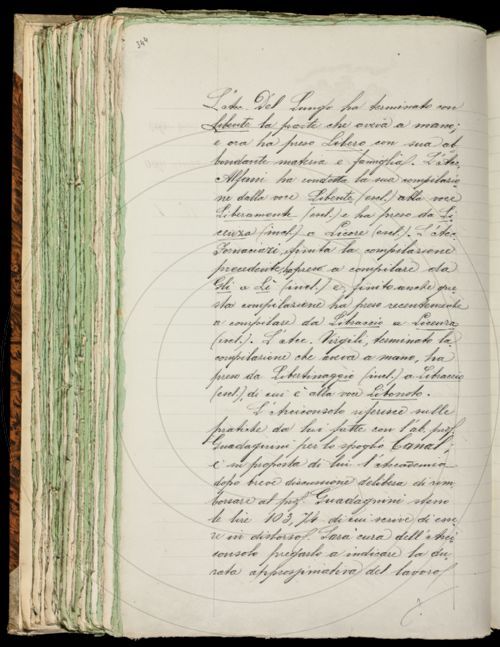 344
L'Acc. Del Lungo ha terminato con
Libente la parte che aveva a mano;
e ora ha preso Libero con sua ab
bondante materia e famiglia. L'Acc.
Alfani ha condotta la sua compilazio-
ne dalla voce Libente (escl.) alla voce
Liberamente (incl.) e ha preso da Li
cenza (incl.) a Licore (escl.). L'Acc.
Fornaciari, finita la compilazione
precedente, ha preso a compilare da
Gli a Lì (incl.) e, finita anche que
sta compilazione ha preso recentemente
a compilare da Libraccio a Licenza
(incl.). L'Acc. Virgilj, terminata la
compilazione che aveva a mano, ha
preso da Libertinaggio (incl.) a Libraccio
(escl.) di cui è alla voce Libonoto.
L'Arciconsolo riferisce sulle
pratiche da lui fatte con l'ab. prof.
Guadagnini per lo spoglio Canal;
e in proposta di lui l'Accademia
dopo breve discussione delibera di rim
borsare al prof. Guadagnini
le lire 103,74 di cui scrive di esse
re in disborso. Sarà cura dell'Arci
consolo pregarlo a indicare la du
rata approssimativa del lavoro